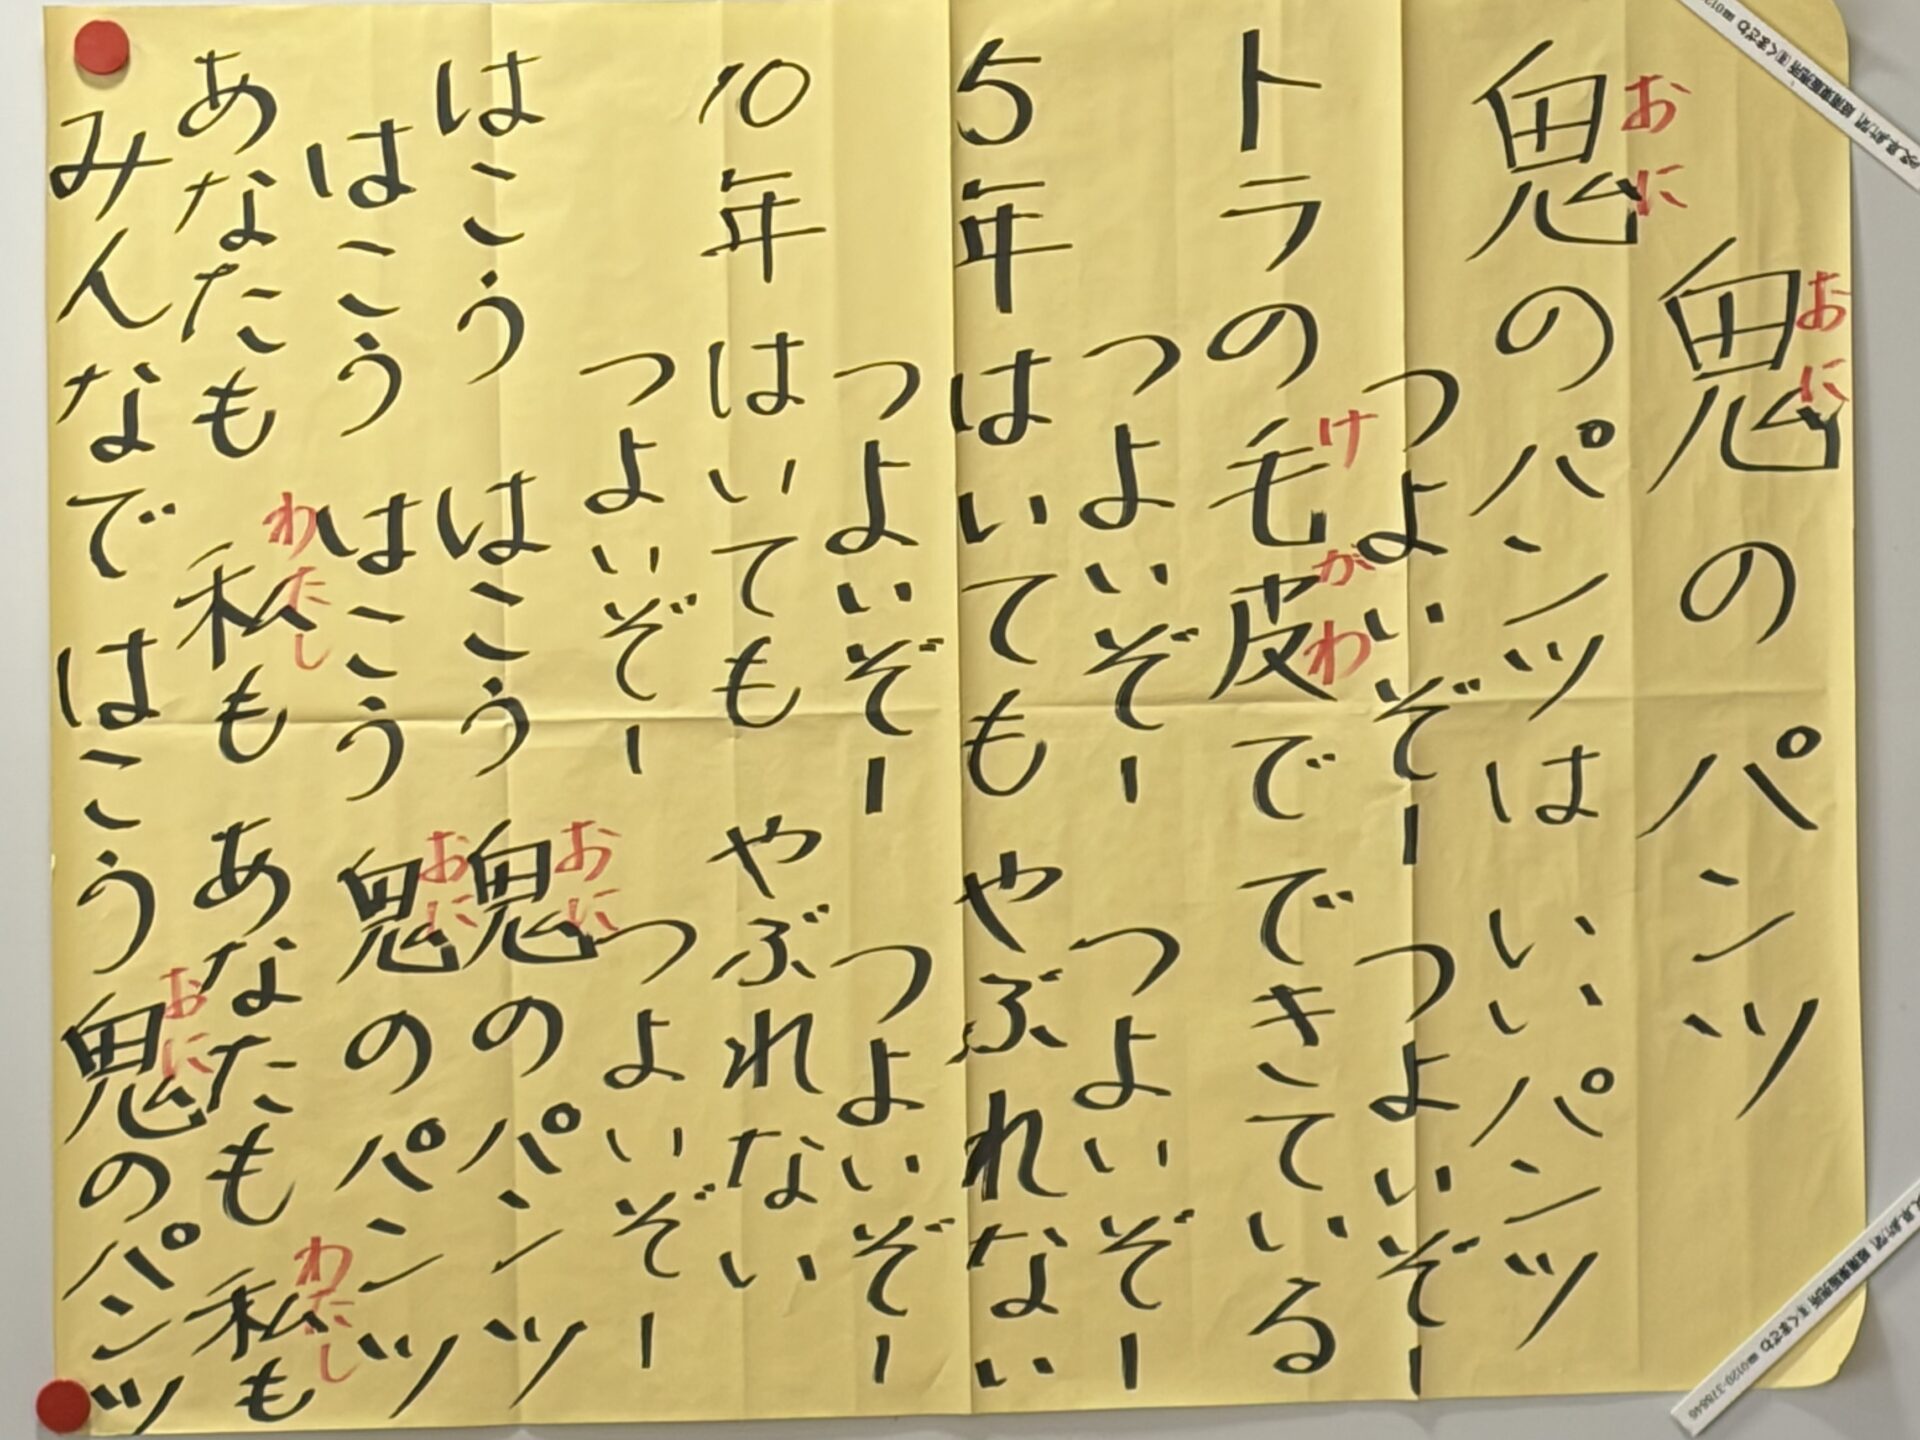 鬼のパンツ
おに
鬼のパンツは いいパンツ
おに
つよいぞー つよいぞー
トラの毛皮で できている
け がわ
つよいぞー つよいぞー
5年はいても やぶれない
つよいぞー つよいぞー
10年はいても やぶれない
つよいぞー つよいぞー
はこう はこう 鬼のパンツ
おに
はこう はこう 鬼のパンツ
おに
あなたも 私も あなたも 私も
わたし わたし
みんなで はこう 鬼のパンツ
おに